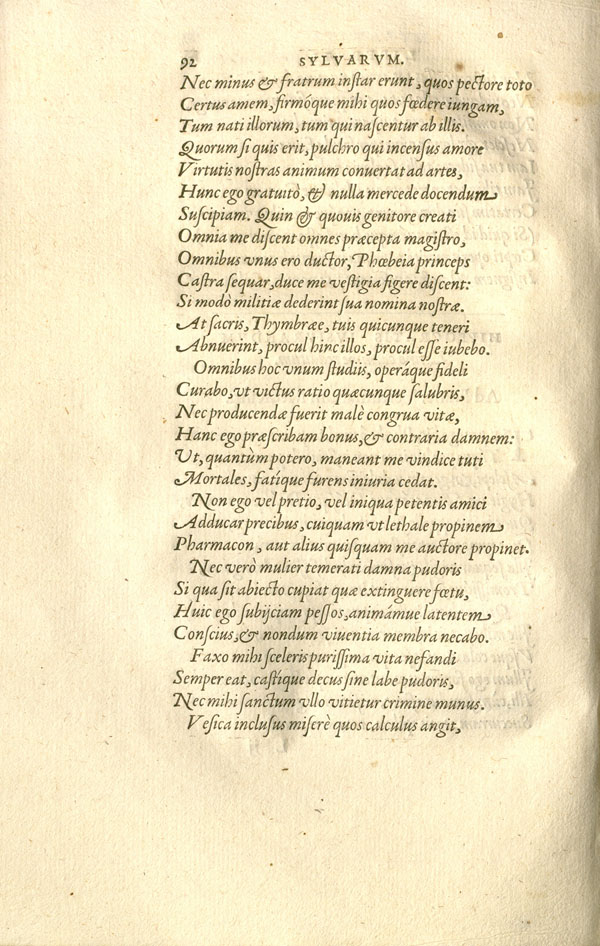 92 SYLVARVM.
Nec minus & fratrum instar erunt, quos pectore toto
Certus amem, firmóque mihi quos fœdere iungam,
Tum nati illorum, tum qui nascentur ab illis.
Quorum si quis erit, pulchro qui incensus amore
Virtutis nostras animum conuertat ad artes,
Hunc ego gratuitò, & nulla mercede docendum
Suscipiam. Quin & quouis genitore creati
Omnia me discent omnes præcepta magistro,
Omnibus vnus ero ductor, Phœbeia princeps
Castra sequar, duce me vestigia figere discent:
Si modò militiæ dederint sua nomina nostræ.
At sacris, Thymbræe, tuis quicunque teneri
Abnuerint, procul hinc illos, procul esse iubebo.
Omnibus hoc vnum studiis, operáque fideli
Curabo, vt victus ratio quæcunque salubris,
Nec producendæ fuerit malè congrua vitæ,
Hanc ego præscribam bonus, & contraria damnem:
Ut, quantùm potero, maneant me vindice tuti
Mortales, fatíque furens iniuria cedat.
Non ego vel pretio, vel iniqua petentis amici
Adducar precibus, cuiquam vt lethale propinem
Pharmacon, aut alius quisquam me auctore propinet.
Nec verò mulier temerati damna pudoris
Si qua sit abiecto cupiat quæ extinguere fœtu,
Huic ego subijciam pessos, animámue latentem
Conscius, & nondum viuentia membra necabo.
Faxo mihi sceleris purissima vita nefandi
Semper eat, castíque decus sine labe pudoris,
Nec mihi sanctum vllo vitietur crimine munus.
Vesica inclusus miserè quos calculus angit,